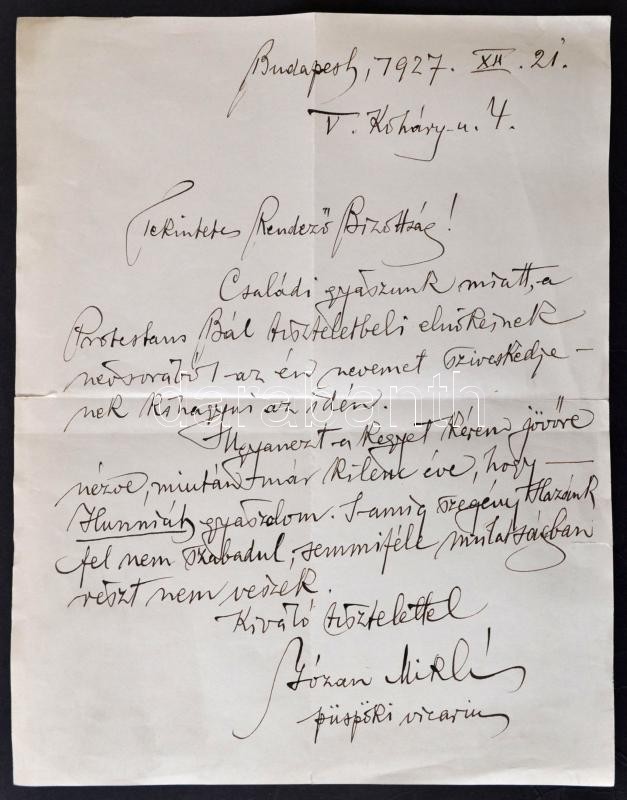 Budapest, 1927. XII. 21.
V. Koháry-u. 4.
Tekintetes Rendező Bizottság!
Családi gyászunk miatt, a
Protestans Bál tiszteletbeli elnökeinek
névsorából az én nevemet sziveskedje-
nek kihagyni az idén.
Ugyanezt a kegyet kérem jövőre
nézve, miután már kilenc éve, hogy -
Hunniát gyászolom. S amig szegény Hazánk
fel nem szabadul, semmiféle mulatságban
részt nem veszek.
Kiváló tisztelettel
Józan Miklós
püspöki vicarius
darabanth